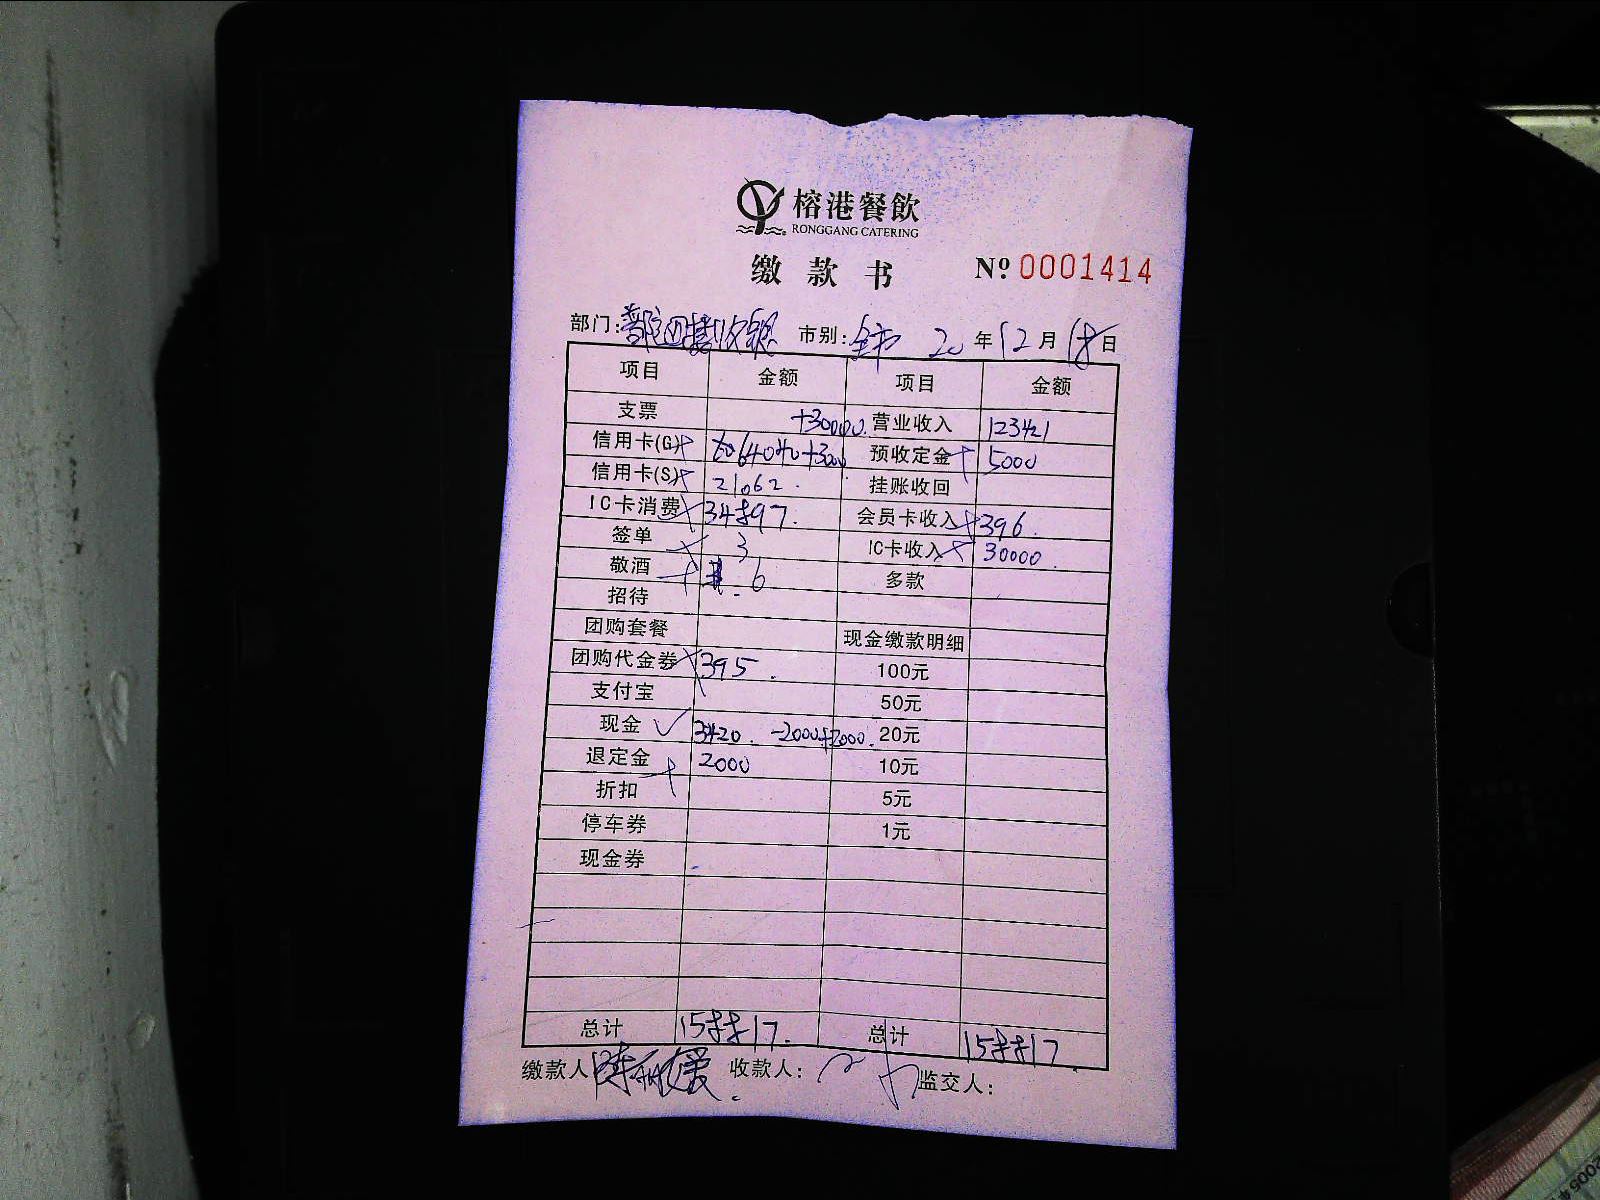 榕港餐飲
RONGGANG CATERING
缴款书 Nº 0001414
部门: 收银 市别: 全市 20年12月18日
项目 金额 项目 金额
支票 +30000. 营业收入 123421
信用卡(G) 64040+3000 预收定金 5000
信用卡(S) 21062. 挂账收回
IC卡消费 34897. 会员卡收入 396.
签单 3 IC卡收入 30000.
敬酒 6 多款
招待
团购套餐 现金缴款明细
团购代金券 395. 100元
支付宝 50元
现金 ✓ 3420. -2000+2000. 20元
退定金 2000 10元
折扣 5元
停车券 1元
现金券
总计 158817. 总计 158817.
缴款人 收款人: 监交人: